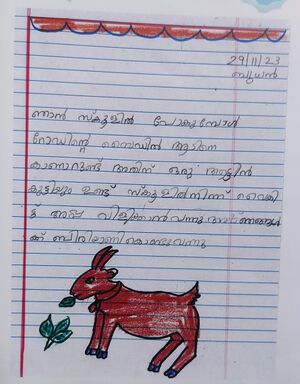 29/11/23
ബുധൻ
ഞാൻ സ്കൂളിൽ പോകുമ്പോൾ
റോഡിന്റെ സൈഡിൽ ആടിനെ
കാണാറുണ്ട് അതിന് ഒരു ആട്ടിൻ
കുട്ടിയും ഉണ്ട് സ്കൂളിൽ നിന്ന് വൈകി
ട്ട് അപ്പ വിളിക്കാൻ വന്നു
ക്ക് ബിരിയാണി കൊണ്ടുവന്നു